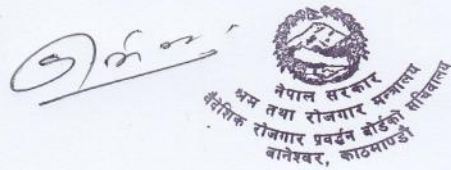 नेपाल सरकार
श्रम तथा रोजगार मन्त्रालय
वैदेशिक रोजगार प्रवर्द्धन बोर्डको सचिवालय
बानेश्वर, काठमाण्डौ